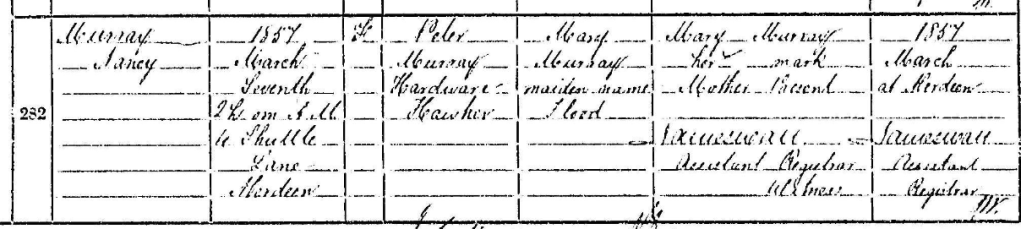 282
Murray
Nancy
1857
March
Seventh
2 h. om A.M.
4 Shuttle
Lane
Aberdeen
F
Peter
Murray
Hardware
Hawker
Mary
Murray
maiden name
Flood
Mary Murray
her mark
Mother Present
Assistant Registrar
Witness
1857
March
at Aberdeen
Assistant
Registrar